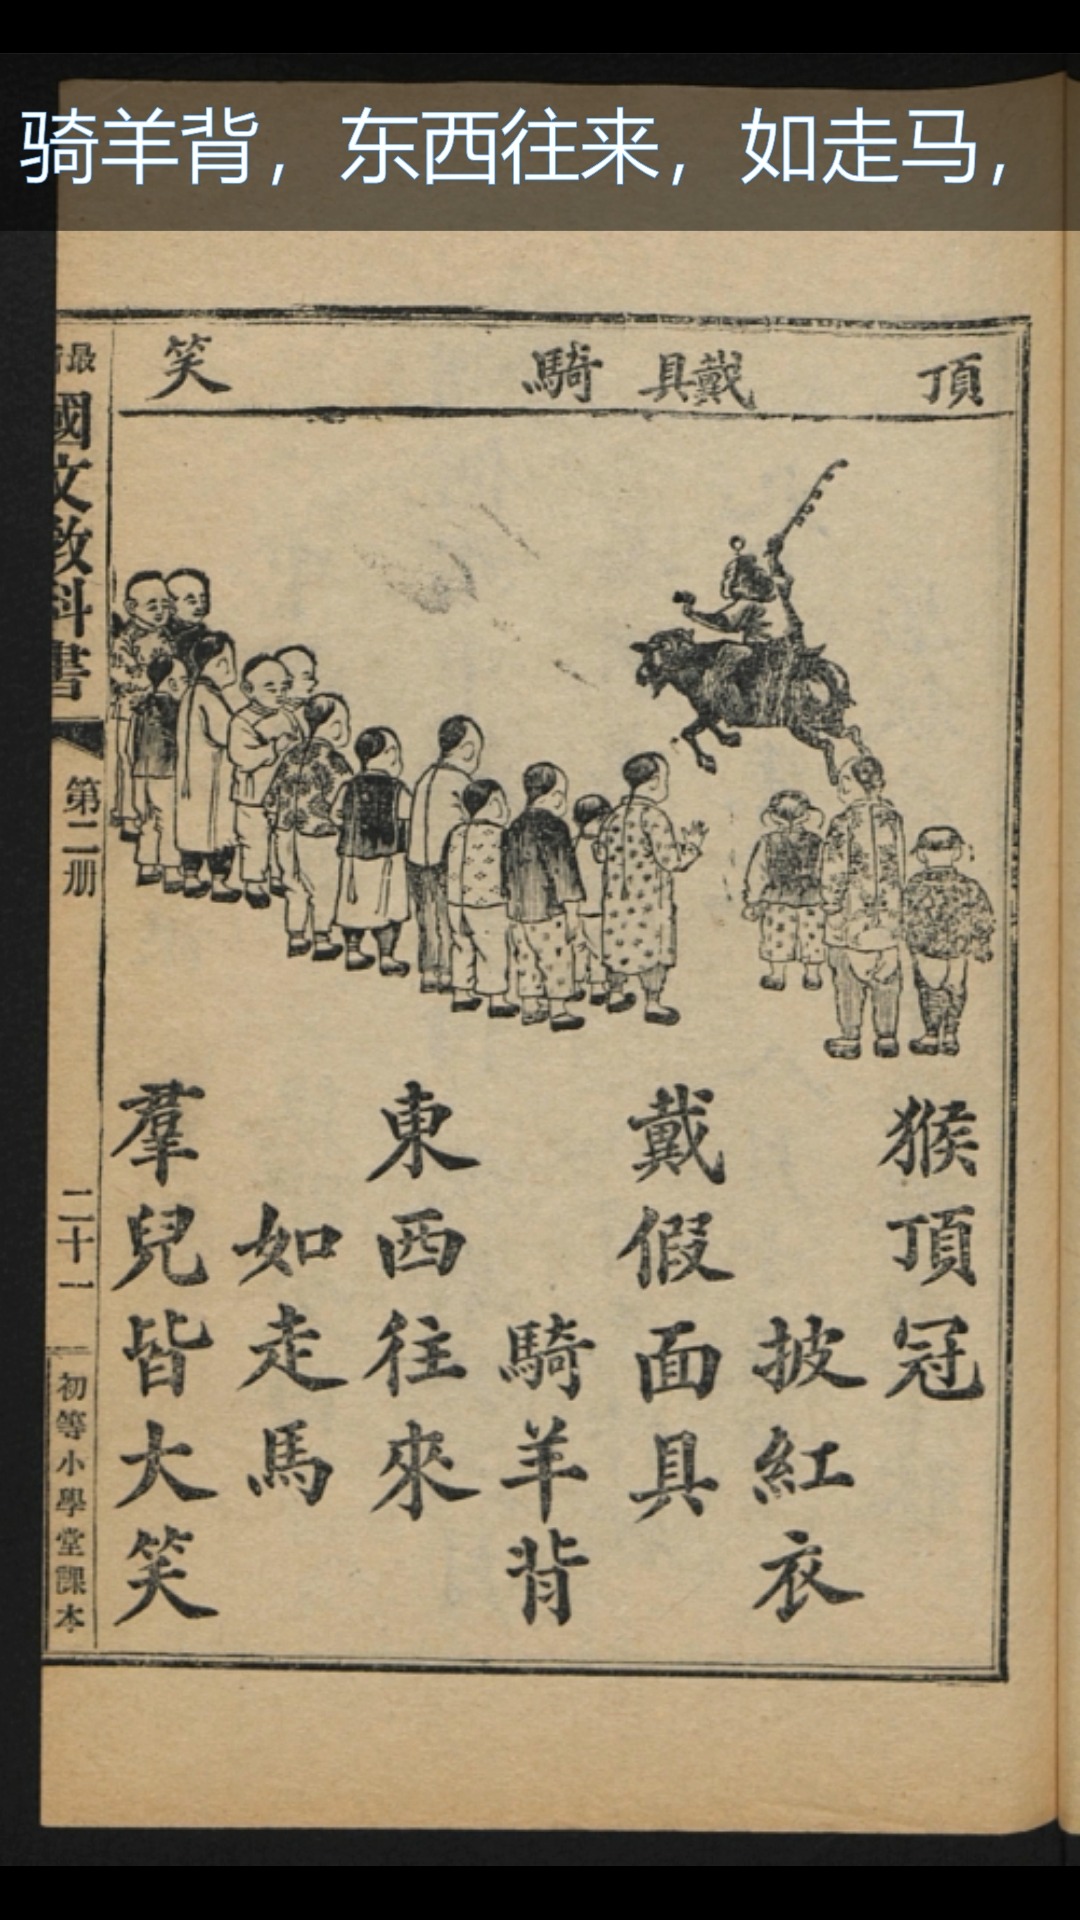 骑羊背，东西往来，如走马，
頂
戴具
騎
笑
猴頂冠
披紅衣
戴假面具
騎羊背
東西往來
如走馬
羣兒皆大笑
最新
國文教科書
第二册
二十一
初等小學堂課本